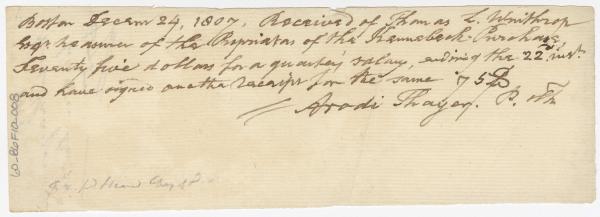 Boston Decem 24, 1807, Received of Thomas L. Winthrop
Esqr. treasurer of the Propriators of the Kennebeck Purchase
Seventy five dollars for a quarters salary, ending the 22d. inst.
and have signed another receipt for the same 75 D
Arodi Thayer.
60-B6F10-008